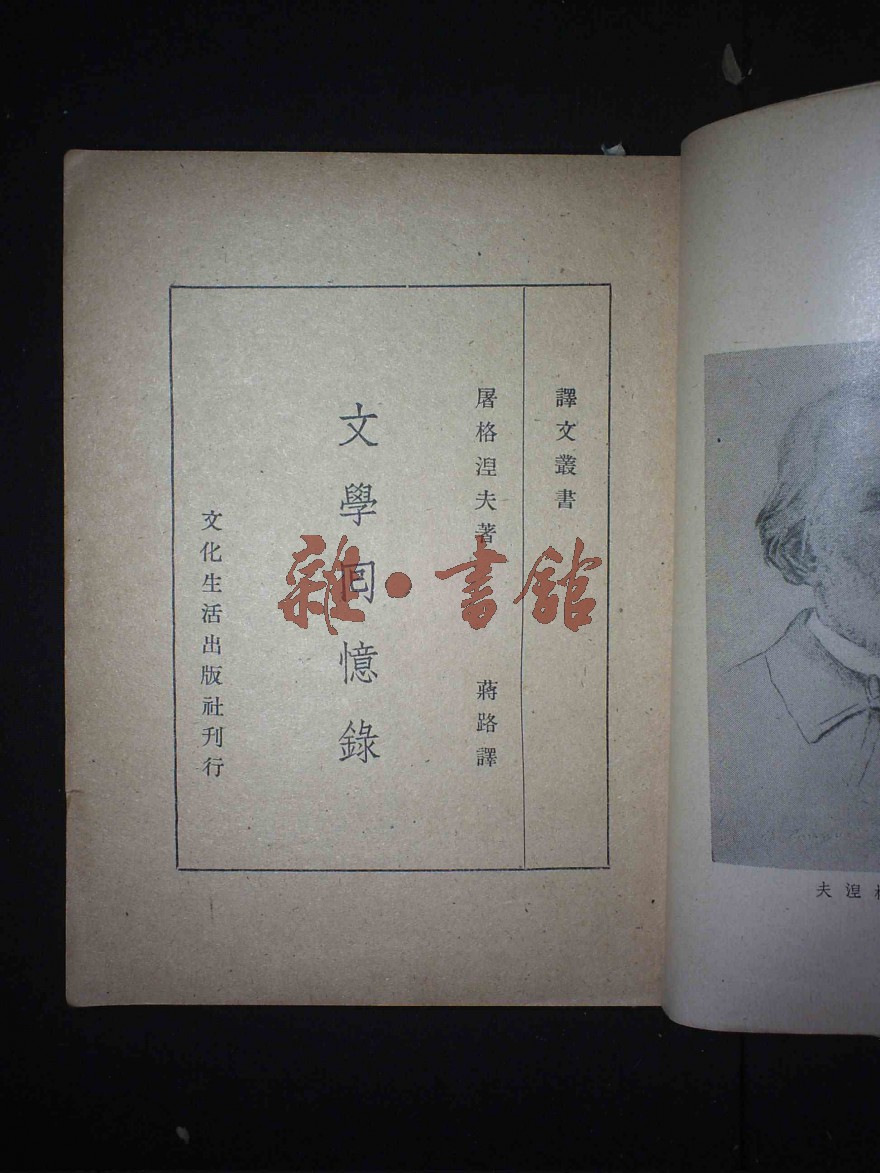 譯文叢書
屠格涅夫著
蔣路譯
文學回憶錄
文化生活出版社刊行
雜·書館
夫湼